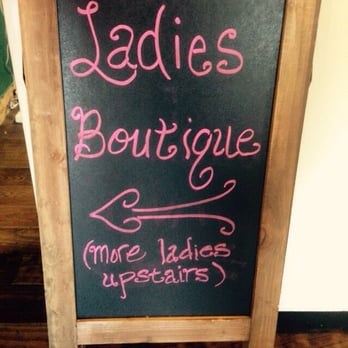 Ladies
Boutique
(more ladies
upstairs)